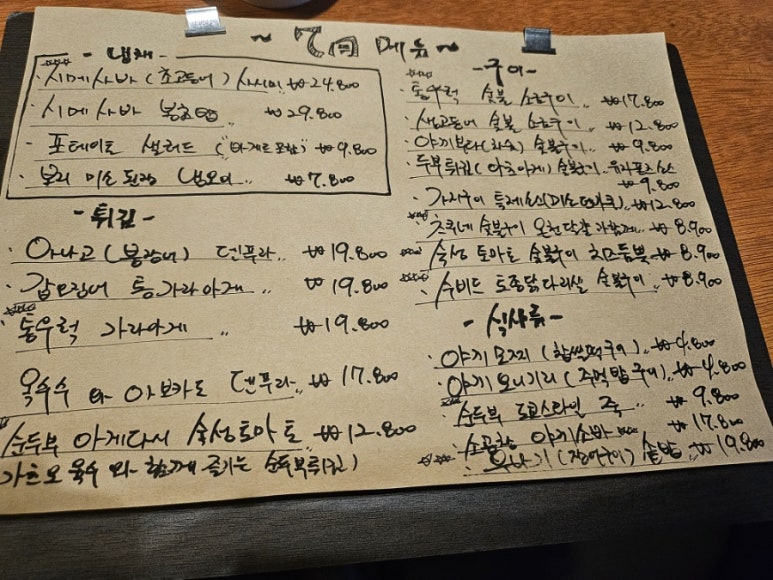 ~ 7月 메뉴 ~
- 냉채 -
· 시메사바 (초고등어) 사시미 ₩24.800
· 시메사바 봉초밥 ₩29.800
· 포테이토 샐러드 (바게트포함) ₩9.800
· 보리 미소된장 냉오이 ₩7.800
- 튀김 -
· 아나고 (붕장어) 덴푸라 ₩19.800
· 갑오징어 통가라아게 ₩19.800
· 통우럭 가라아게 ₩19.800
옥수수 와 아보카도 덴푸라 ₩17.800
순두부 아게다시 숙성토마토 ₩12.800
가츠오 육수 와 함께 즐기는 순두부튀김)
- 구이 -
· 통우럭 숯불 소금구이 ₩17.800
· 생고등어 숯불 소금구이 ₩12.800
· 야끼부타(차슈) 숯불구이 ₩9.800
· 두부튀김(아츠아게) 숯불구이 유자폰즈소스 ₩9.800
· 가지구이 특제소스(미소덴가쿠) ₩12.800
· 츠쿠네 숯불구이 온천달걀과함께 ₩8.900
· 숙성 토마토 숯불구이 치즈듬뿍 ₩8.900
· 수비드 토종닭다리살 숯불구이 ₩8.900
- 식사류 -
· 야끼모찌 (찹쌀떡구이) ₩4.800
· 야끼오니기리 (주먹밥구이) ₩4.800
· 순두부 도쿄스타일 죽 ₩9.800
· 소곱창 야끼소바 ₩17.800
· 우나기 (장어구이) 솥밥 ₩19.800